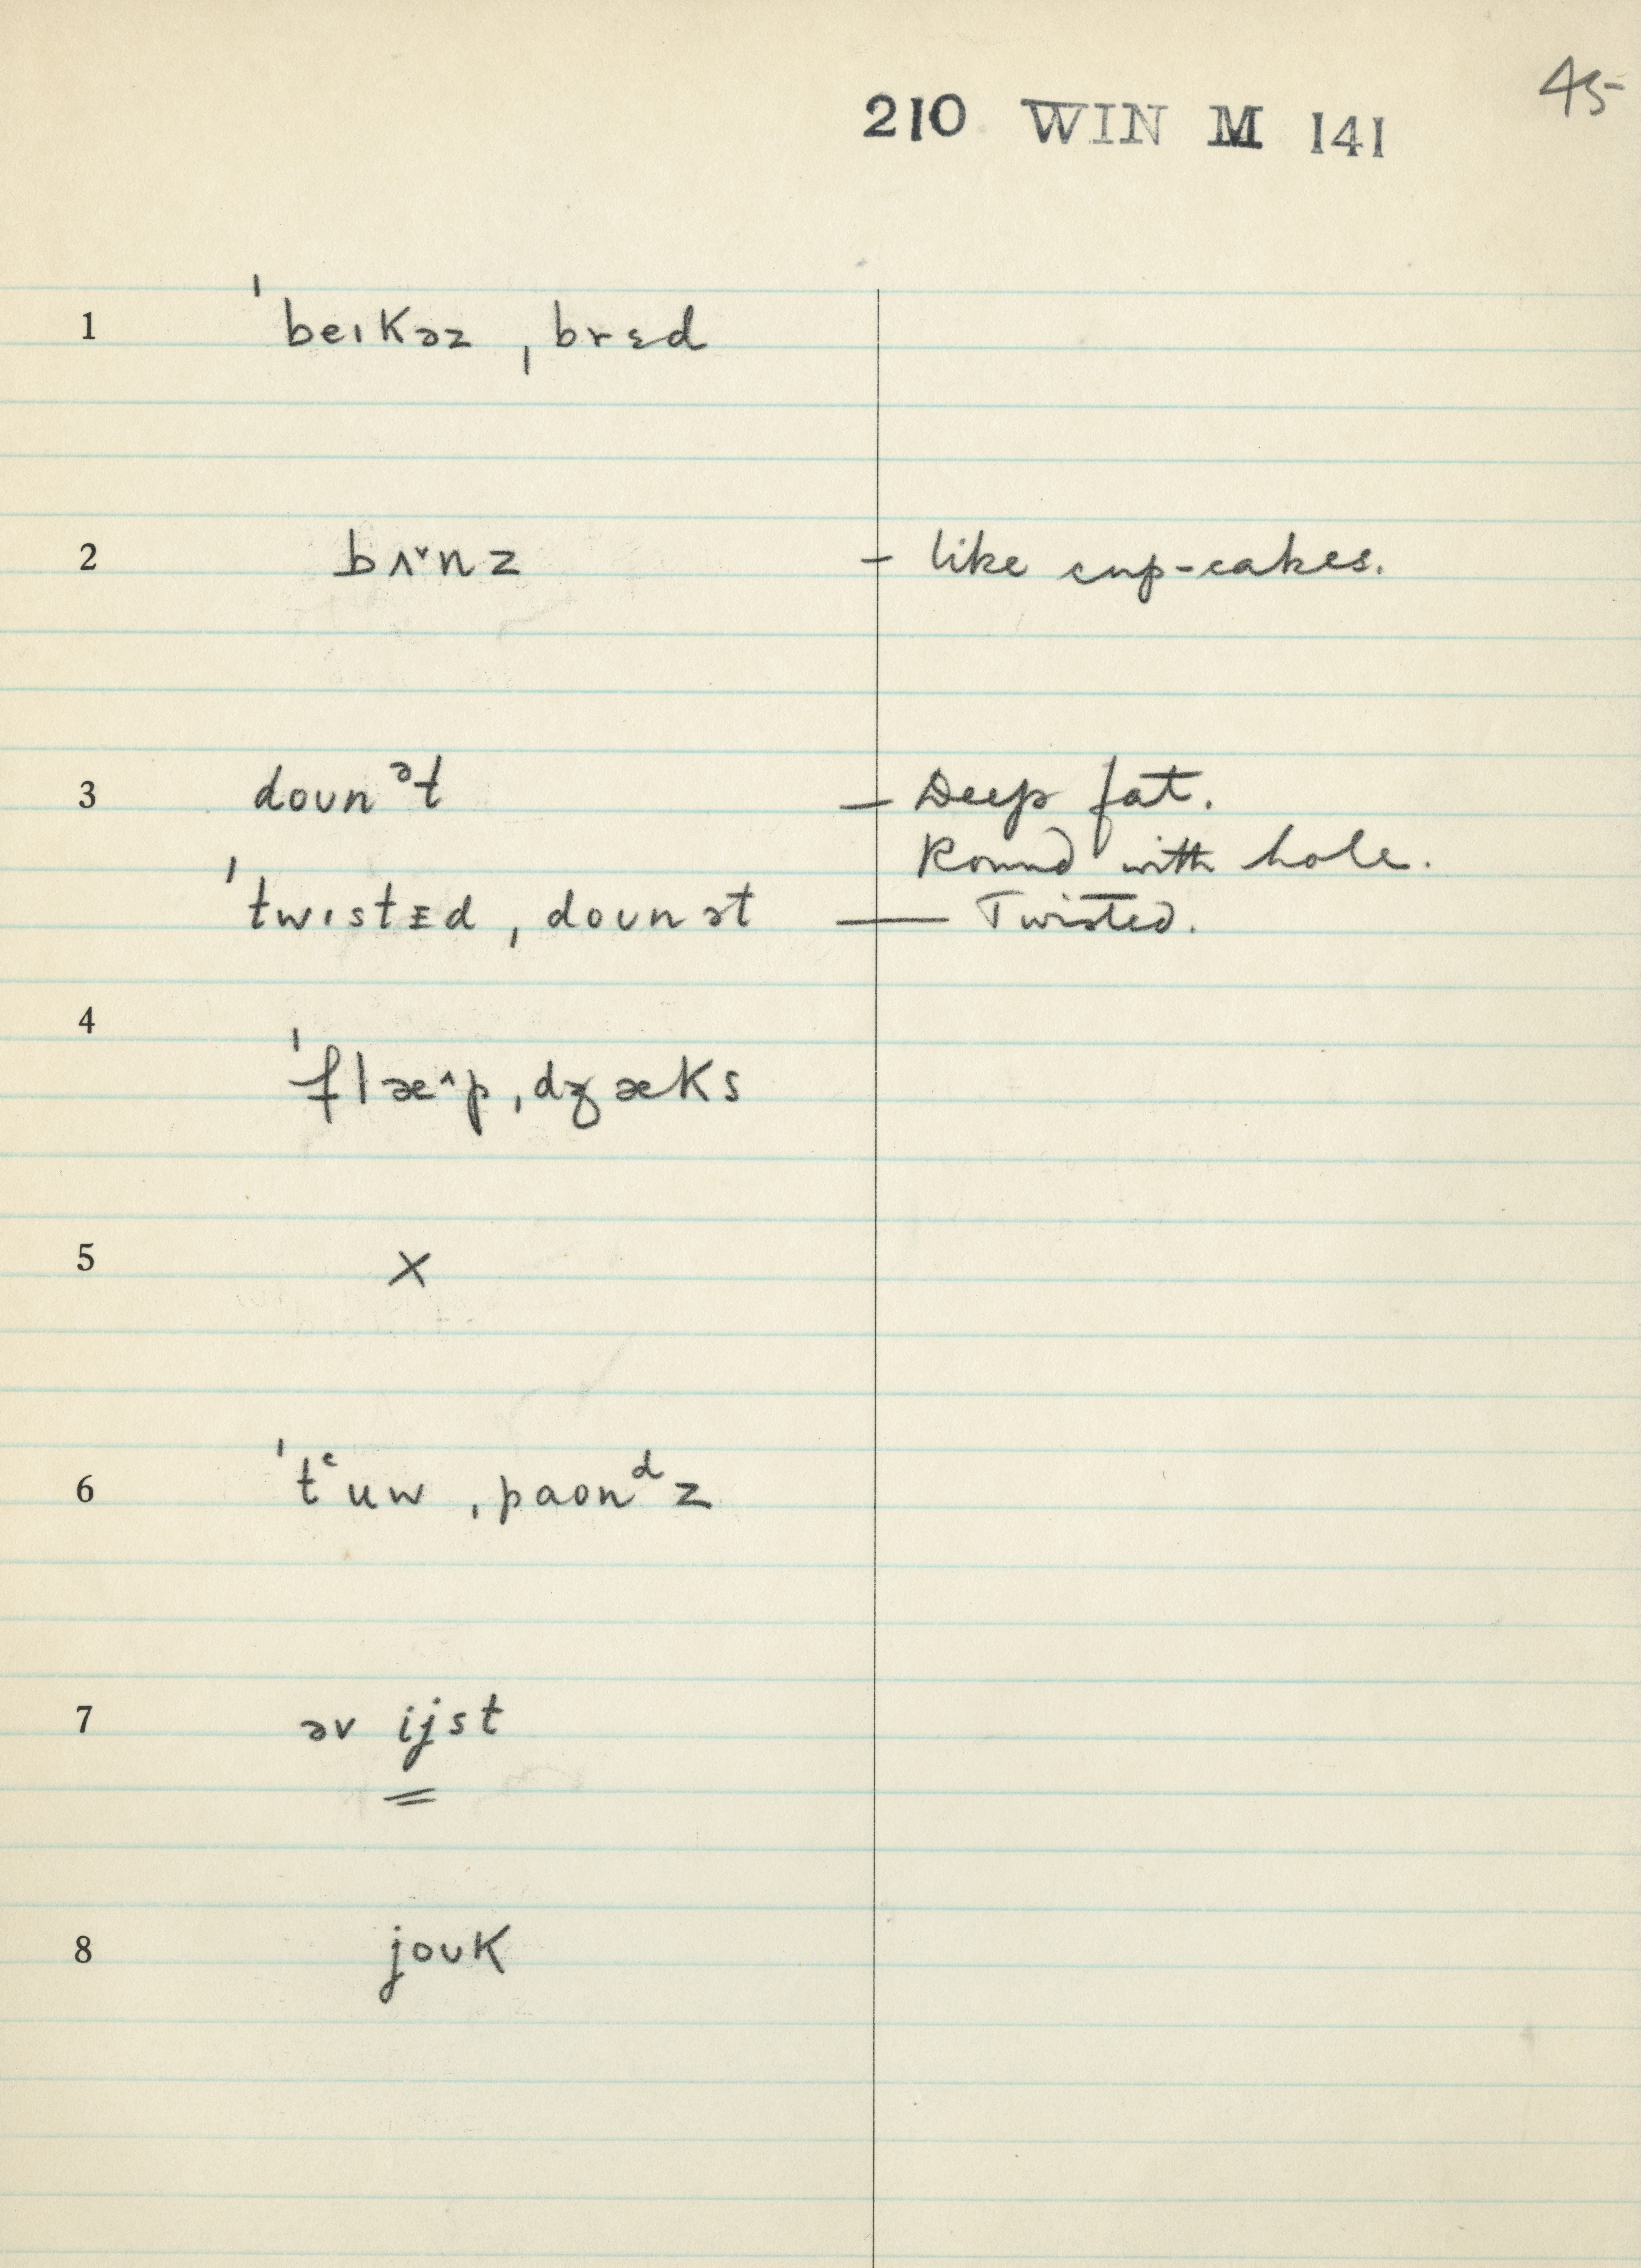 45
210 WIN M 141
1 ˈbeɪKəz ˌbrɛd
2 bʌ˅nz – like cup-cakes.
3 doᴜnᵊt – Deep fat.
Round with hole.
ˈtwɪstᵻd ˌdoᴜnət — Twisted.
4 ˈflæ^p ˌdʒæKs
5 X
6 ˈtʿuw ˌpaonᵈz
7 əv ijst
8 joᴜK